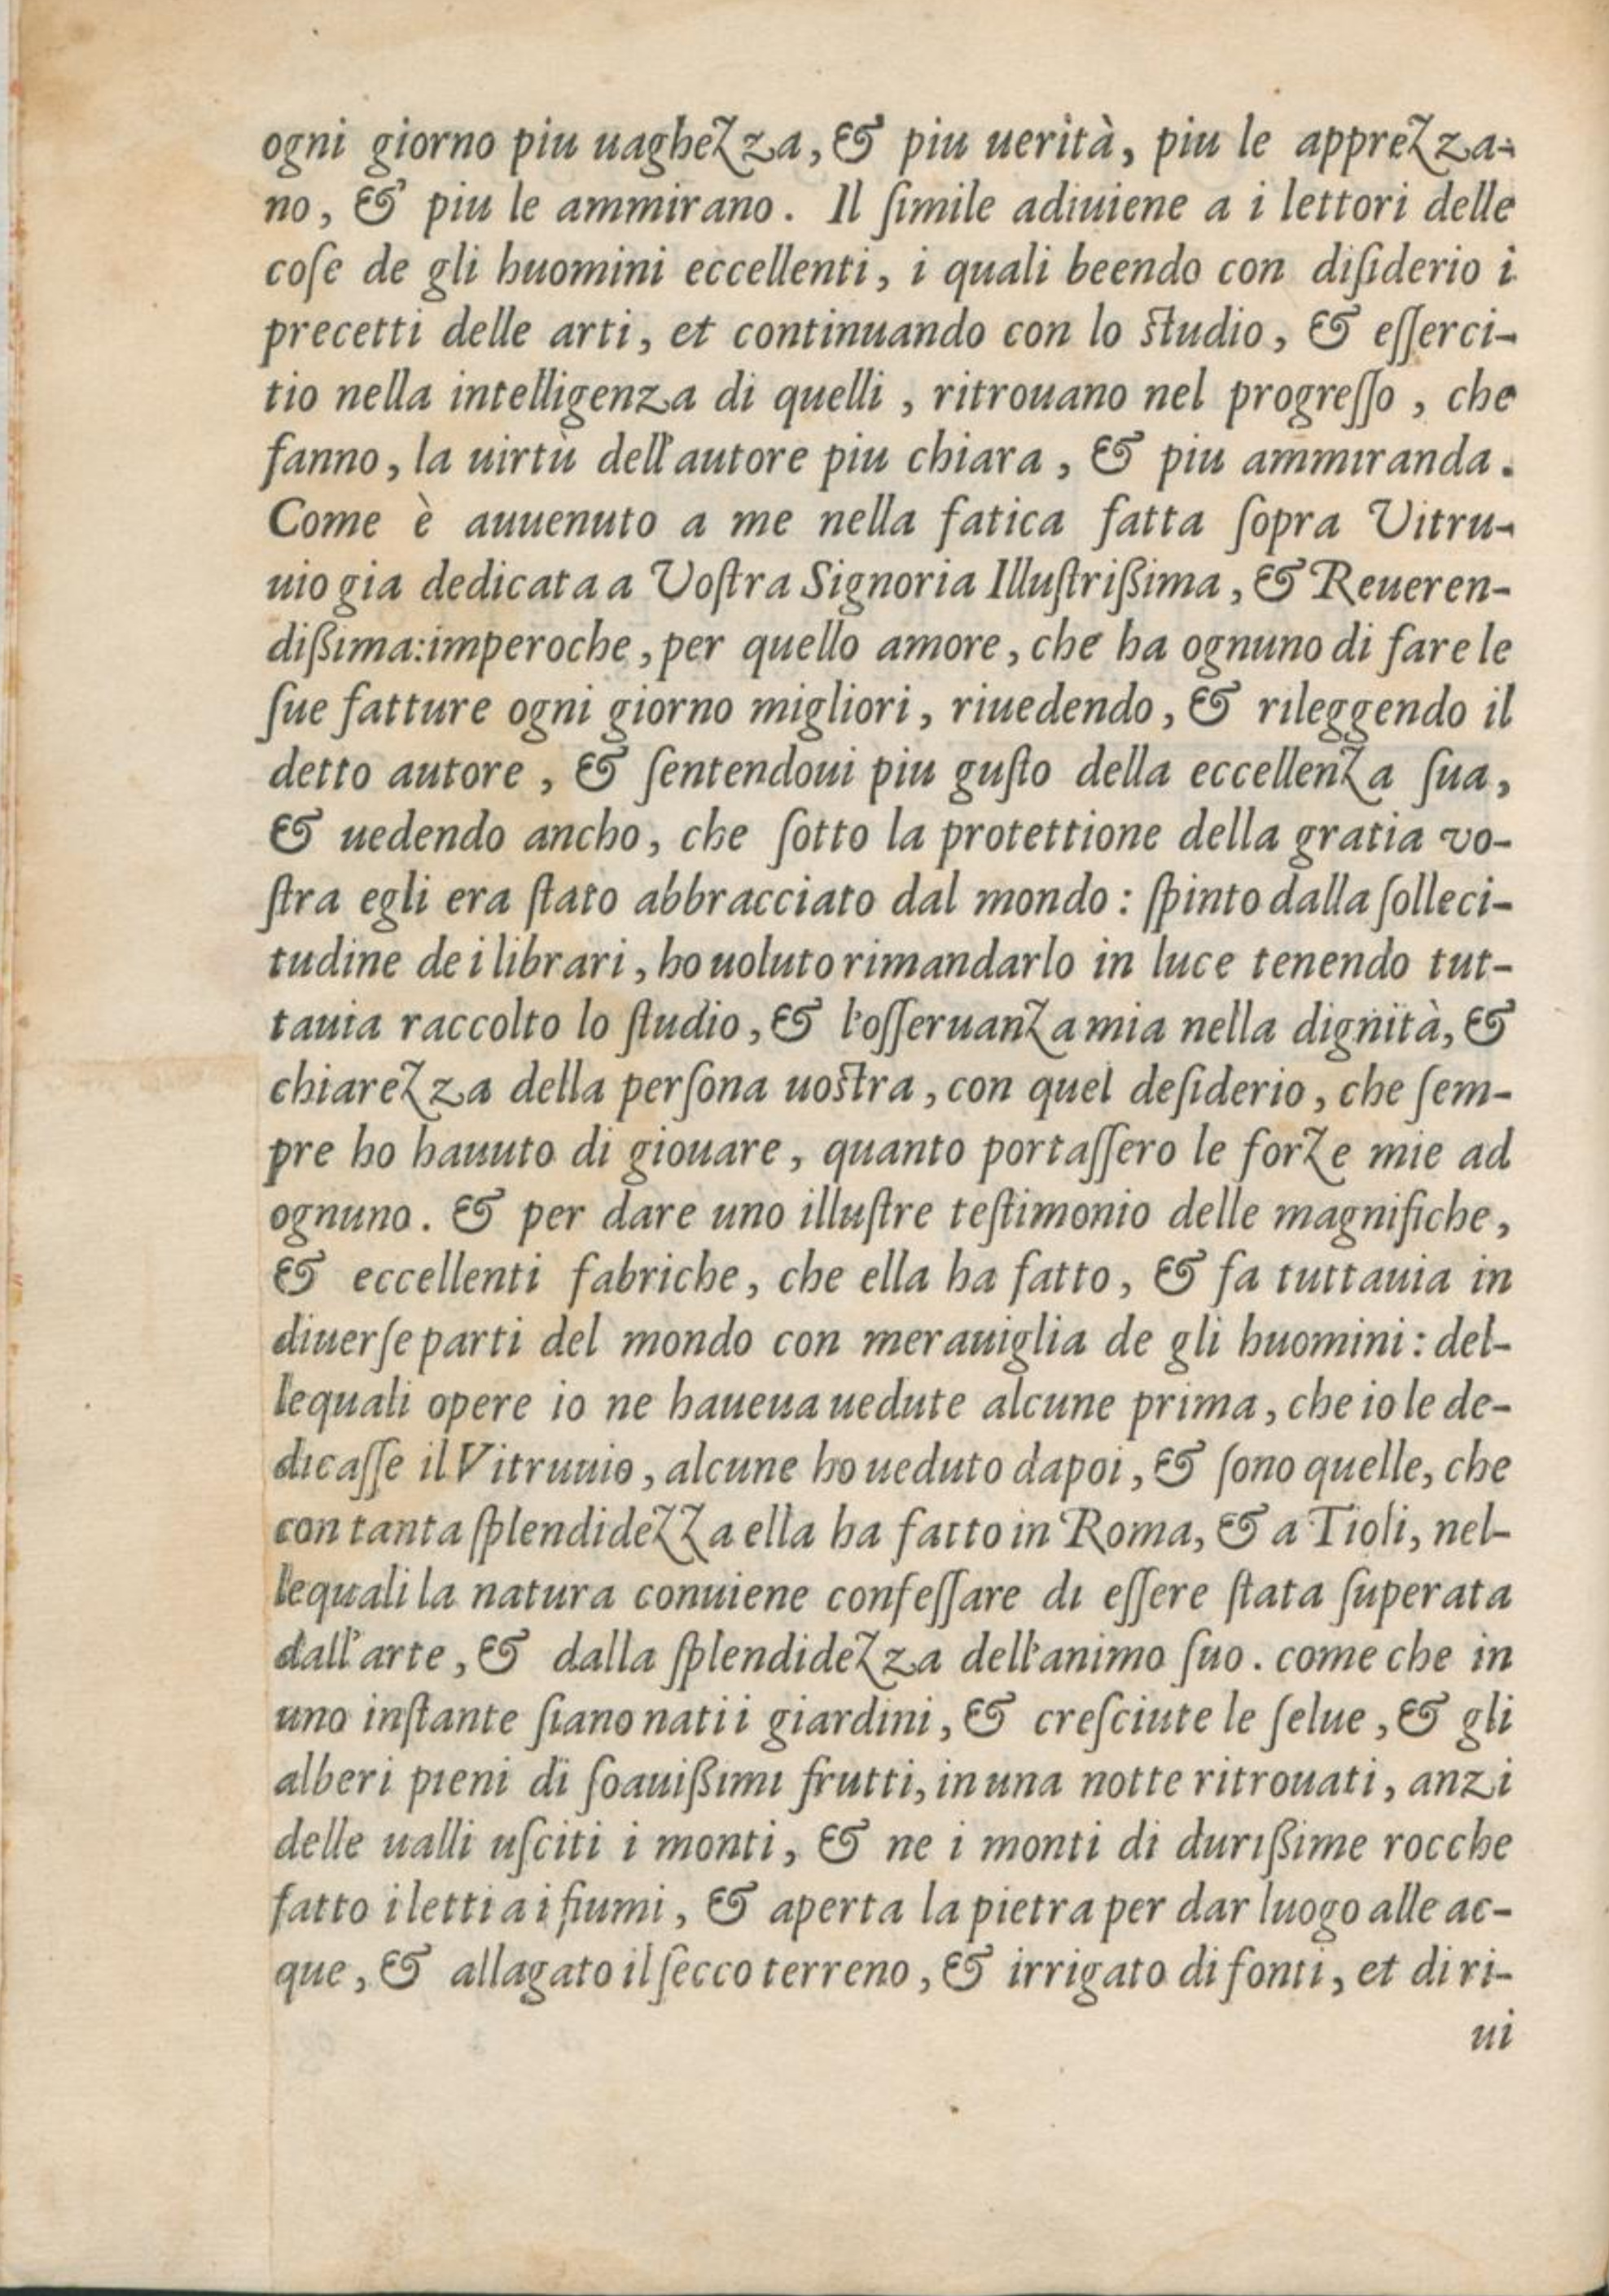 ogni giorno piu uaghezza, & piu uerità, piu le apprezza-
no, & piu le ammirano. Il ſimile adiuiene a i lettori delle
coſe de gli huomini eccellenti, i quali beendo con diſiderio i
precetti delle arti, et continuando con lo ſtudio, & eſſerci-
tio nella intelligenza di quelli, ritrouano nel progreſſo, che
fanno, la uirtù dell'autore piu chiara, & piu ammiranda.
Come è auuenuto a me nella fatica fatta ſopra Vitru-
uio gia dedicata a Voſtra Signoria Illuſtriſsima, & Reueren-
diſsima: imperoche, per quello amore, che ha ognuno di fare le
ſue fatture ogni giorno migliori, riuedendo, & rileggendo il
detto autore, & ſentendoui piu guſto della eccellenza ſua,
& uedendo ancho, che ſotto la protettione della gratia vo-
ſtra egli era ſtato abbracciato dal mondo: ſpinto dalla ſolleci-
tudine de i librari, ho uoluto rimandarlo in luce tenendo tut-
tauia raccolto lo ſtudio, & l'oſſeruanza mia nella dignità, &
chiarezza della perſona uoſtra, con quel deſiderio, che ſem-
pre ho hauuto di giouare, quanto portaſſero le forze mie ad
ognuno. & per dare uno illuſtre teſtimonio delle magnifiche,
& eccellenti fabriche, che ella ha fatto, & fa tuttauia in
diuerſe parti del mondo con merauiglia de gli huomini: del-
lequali opere io ne haueua uedute alcune prima, che io le de-
dicaſſe il Vitruuio, alcune ho ueduto dapoi, & ſono quelle, che
con tanta ſplendidezza ella ha fatto in Roma, & a Tioli, nel-
lequali la natura conuiene confeſſare di eſſere ſtata ſuperata
dall'arte, & dalla ſplendidezza dell'animo ſuo. come che in
uno inſtante ſiano nati i giardini, & creſciute le ſelue, & gli
alberi pieni di ſoauiſsimi frutti, in una notte ritrouati, anzi
delle ualli uſciti i monti, & ne i monti di duriſsime rocche
fatto i letti a i fiumi, & aperta la pietra per dar luogo alle ac-
que, & allagato il ſecco terreno, & irrigato di fonti, et di ri-
ui